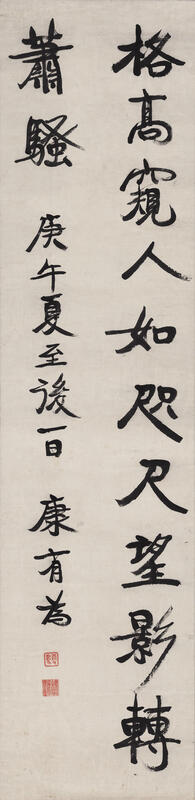 格高窺人如咫尺望影轉
蕭騷
庚午夏至後一日 康有為